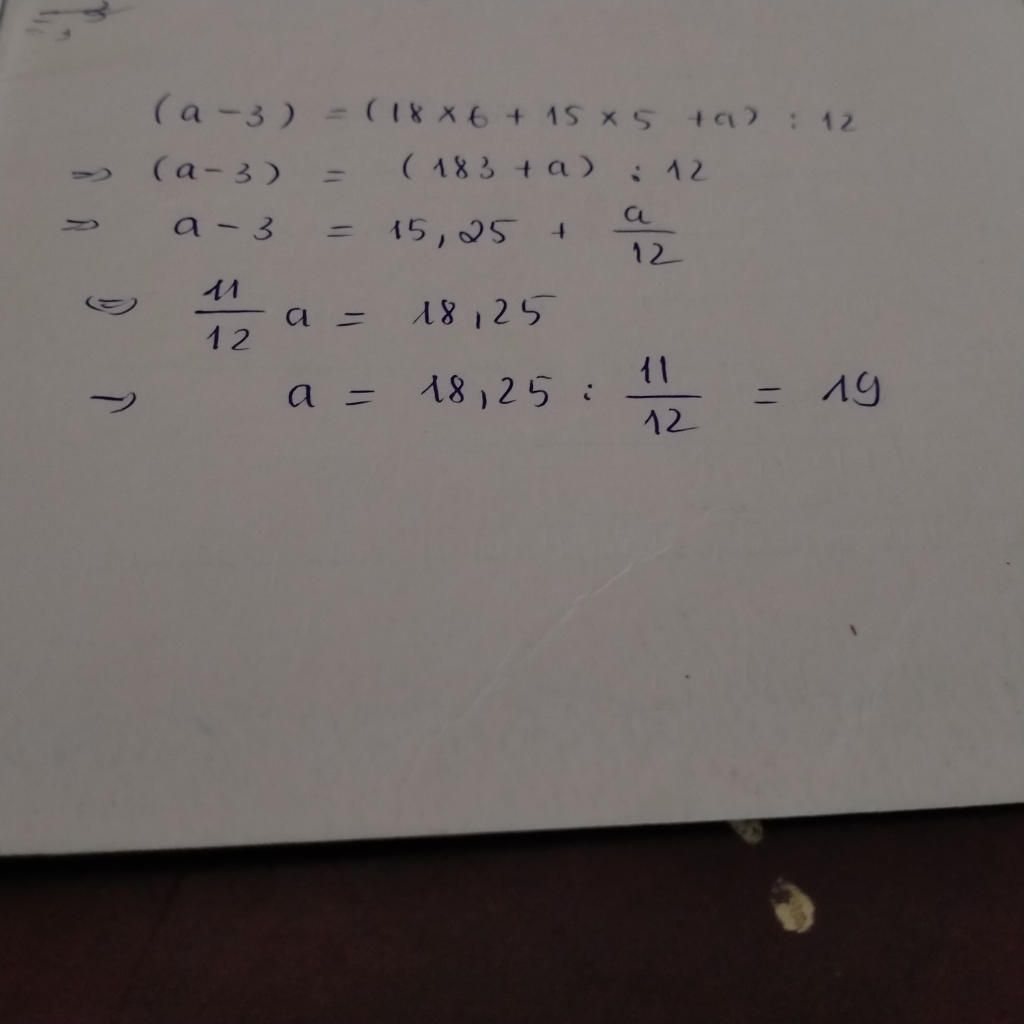 (a - 3) = (18 × 6 + 15 × 5 + a) : 12
=> (a - 3) = (183 + a) : 12
=> a - 3 = 15,25 + a/12
<=> 11/12 a = 18,25
-> a = 18,25 : 11/12 = 19